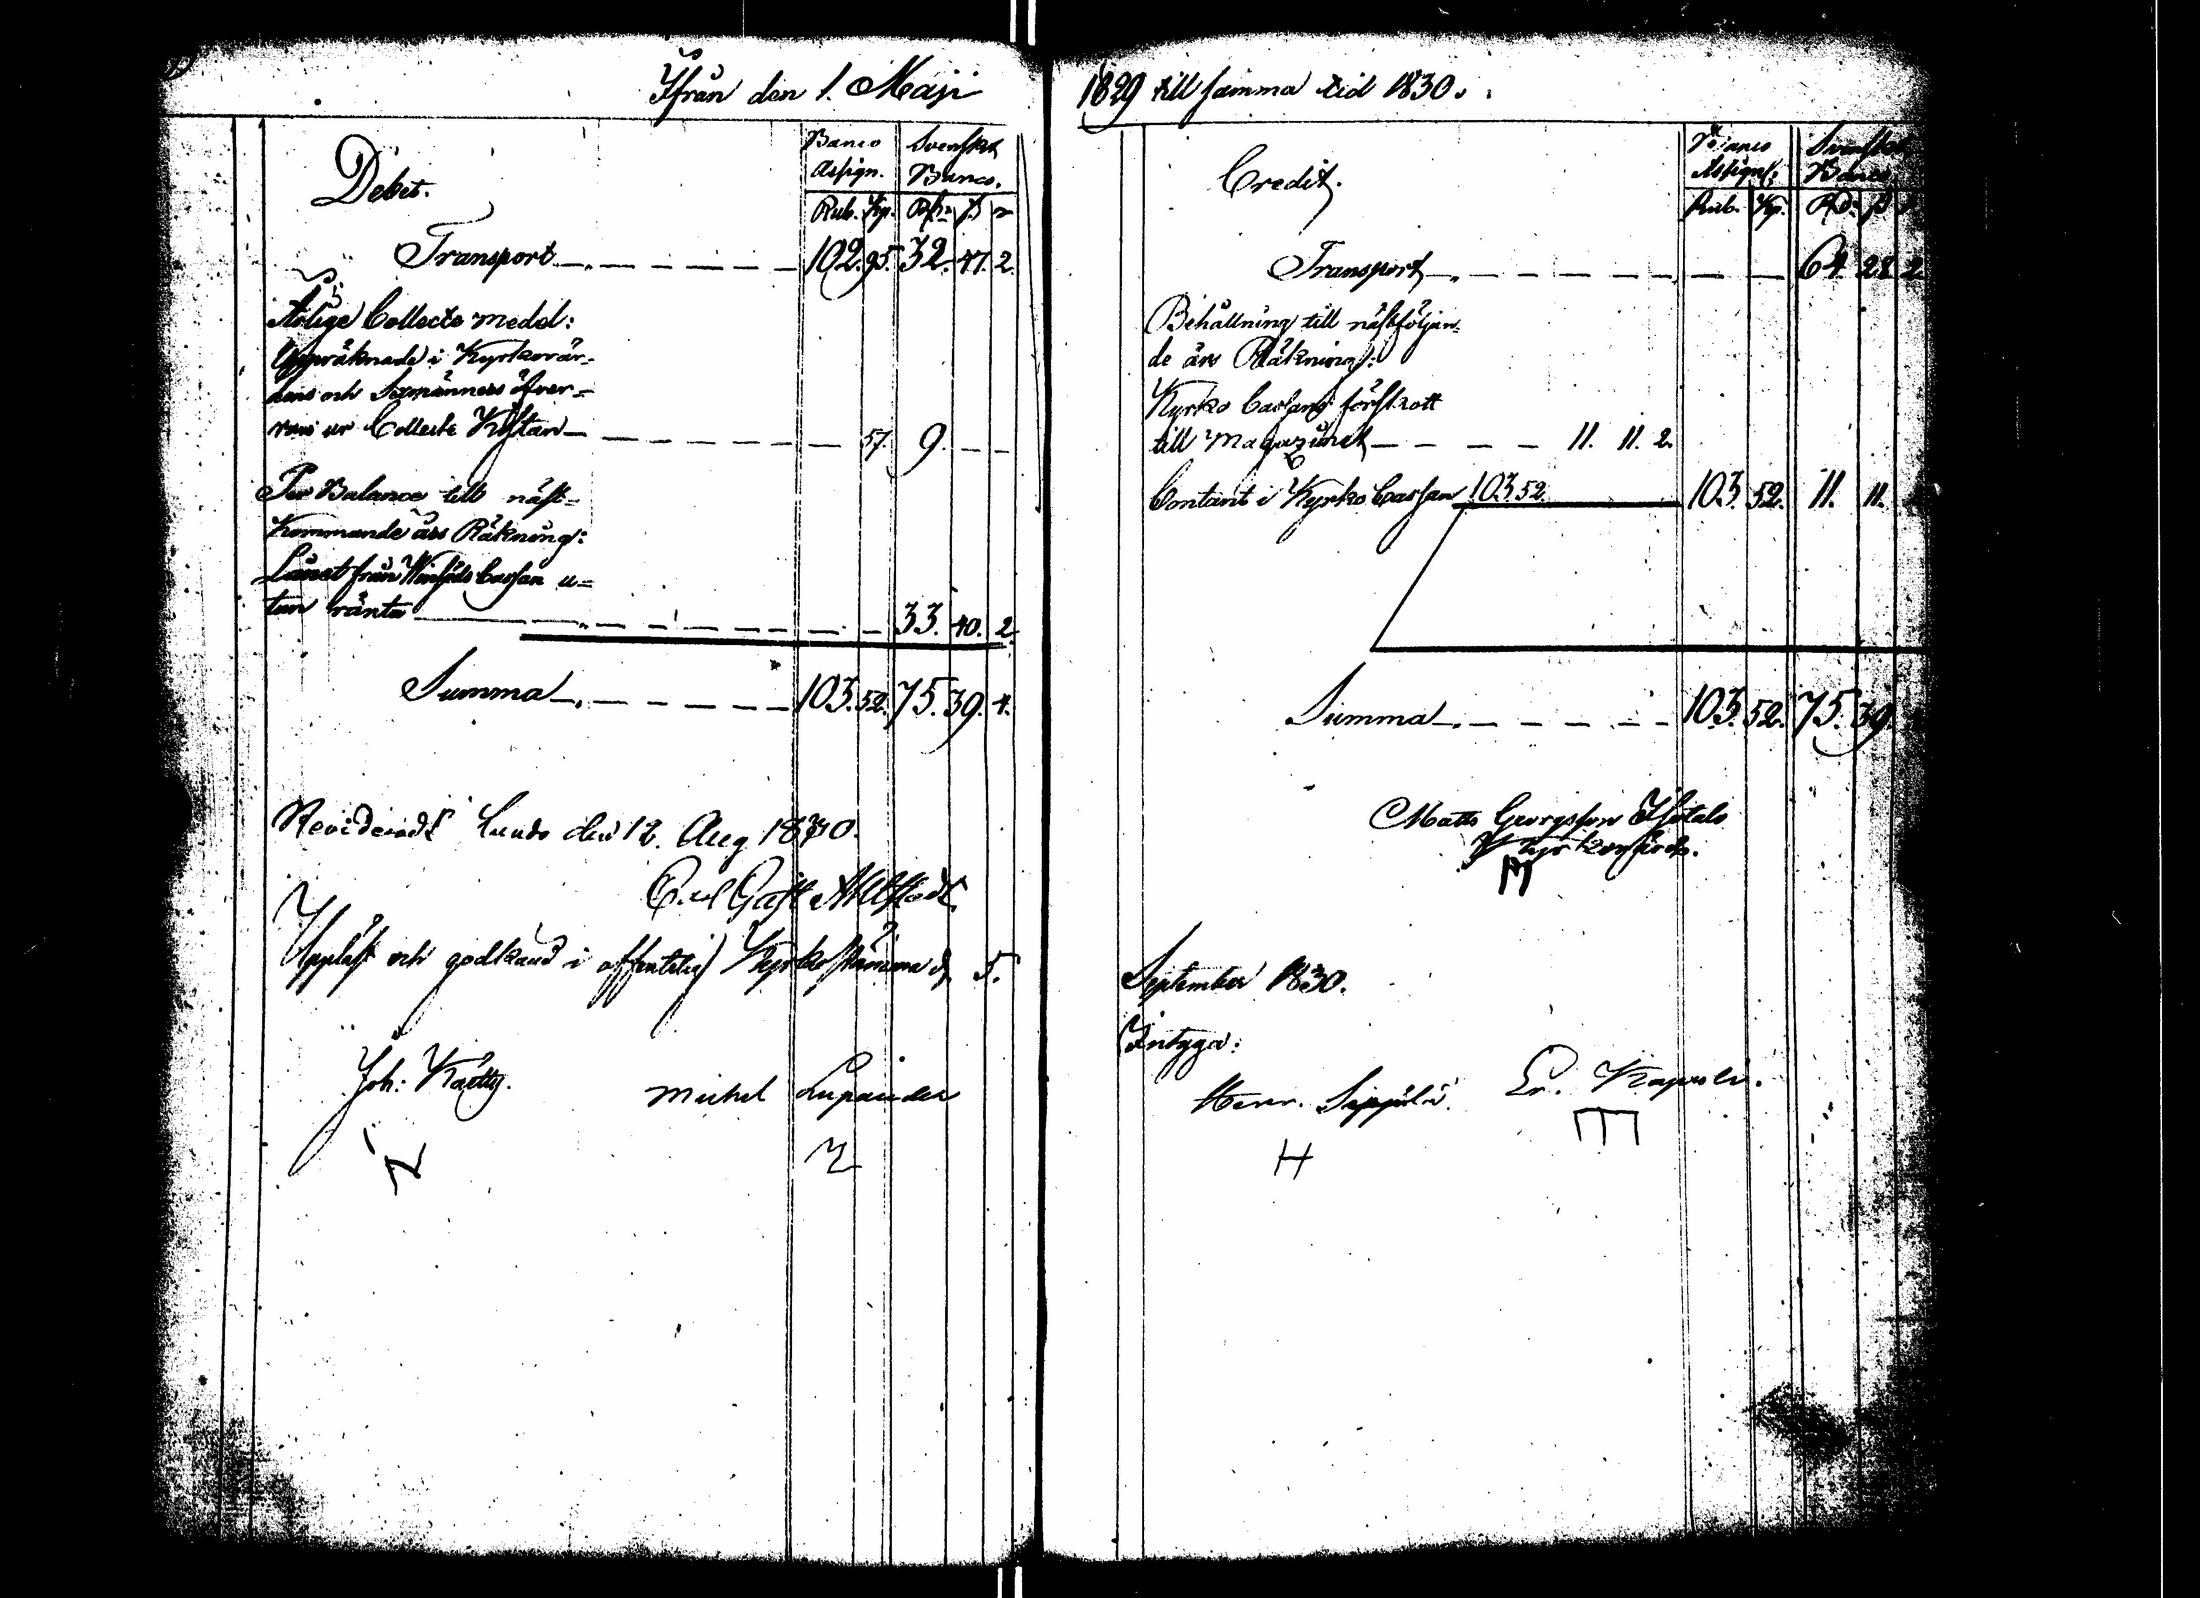 Ifrån den 1. Maji
Debet.
Banco Assign. Svenska Banco.
Rub. Kp. Rd: ß r
Transport 102. 95. 32. 47. 2.
Årlige Collecte medel:
Uppräknade i Kyrkovär-
dens och Sexmänners öfver-
varo ur Collecte Kistan 57. 9.
Per Balance till näst-
kommande års Räkning:
Lånet från Cassan u-
tan ränta 33. 40. 2.
Summa 103. 52. 75. 39. 4.
Revideradt Lundo den 12. Aug 1830.
Carl Gust Ahlstedt
Uppläst och godkänd i offentelig Kyrkostämma d. 5.
Joh: Kartty.
Michel Lupander
1829 till samma tid 1830.
Credit.
Banco Assign. Svenska Banco
Rub. Kp. Rd: ß
Transport 64. 28. 2
Behållning till nästföljan-
de års Räkning:
Kyrko Cassans förskott
till Magazinet 11. 11. 2.
Contant i Kyrko Cassan 103 52. 103. 52. 11. 11.
Summa 103. 52. 75. 39.
Matts Georgsson
Kyrkovärd.
M
September 1830.
Intyga:
Henr. Sippilä.
Er. Kapola.
H
E